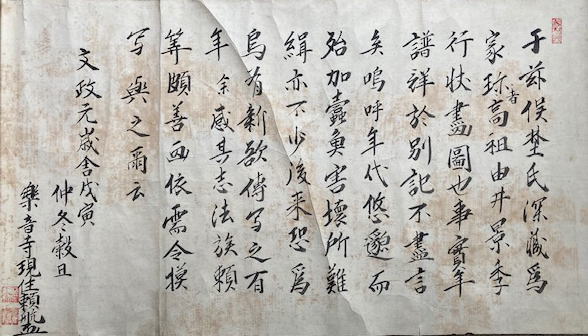 于茲俣埜氏深藏爲
家珎者高祖由井景季
行状畫圖也事實年
譜詳於別記不盡言
矣嗚呼年代悠邈而
殆加蠧魚害壊所難
緝亦不少後来恐爲
烏有新欲傳写之百
年余感其志法族頼
筭頗善画依需令摸
写與之爾云
文政元歳舎戊寅
仲冬穀旦
樂音寺現住頼